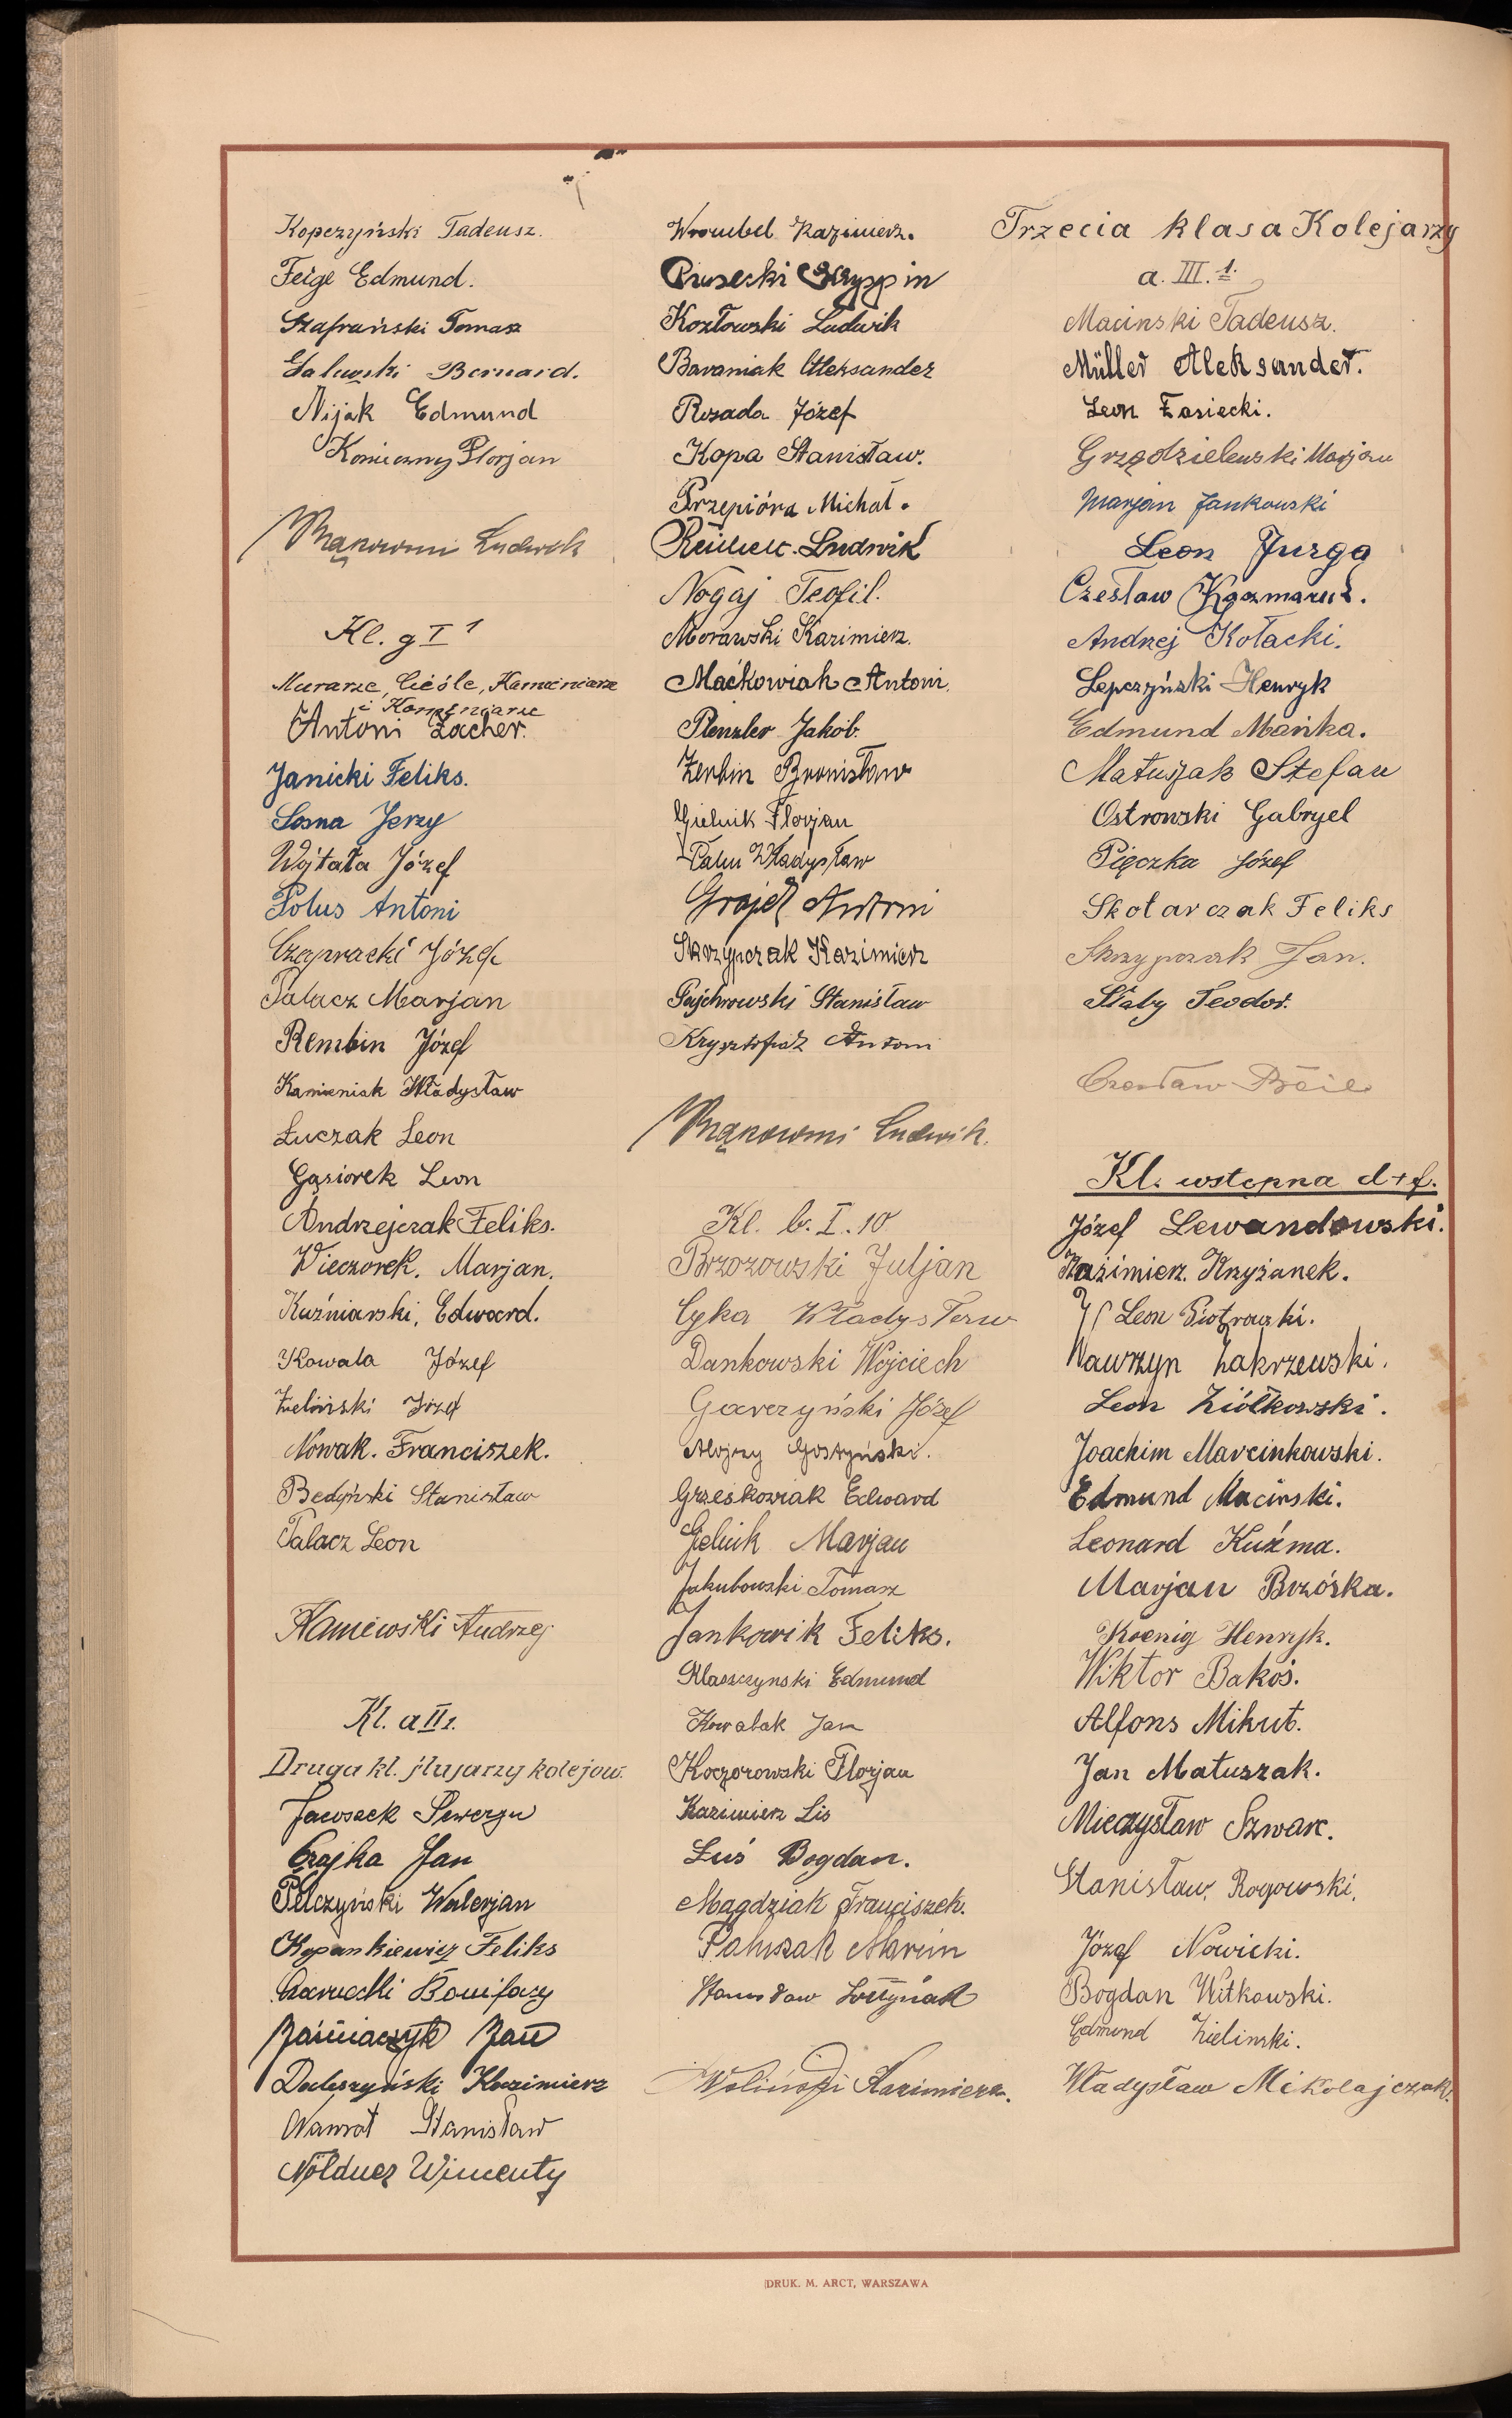 Kopczyński Tadeusz.
Feige Edmund.
Szafrański Tomasz
Galewski Bernard.
Nijak Edmund
Konieczny Florjan
Ludwik
Kl. g I 1
Murarze, Cieśle, Kamieniarze
i Kamieniarze
Antoni Zacher.
Janicki Feliks.
Sosna Jerzy
Wojtała Józef
Polus Antoni
Józef
Talacz Marjan
Rembin Józef
Kamieniak Władysław
Łuczak Leon
Gąsiorek Leon
Andrzejczak Feliks.
Wieczorek. Marjan.
Kuźniarski, Edward.
Kowala Józef
Zieliński Józef
Nowak. Franciszek.
Bedyński Stanisław
Talacz Leon
Kaniewski Andrzej
Kl. a II 1.
Druga kl. ślusarzy kolejow.
Jacosek Seweryn
Czajka Jan
Pełczyński Walerjan
Kopankiewicz Feliks
Czarnecki Bonifacy
Jan
Daleszyński Kazimierz
Nawrot Stanisław
Nöldner Wincenty
Wrombel Kazimierz.
Piusecki Kryspin
Kozłowski Ludwik
Baraniak Aleksander
Rosada Józef
Kopa Stanisław.
Przepióra Michał.
Ludwik
Nogaj Teofil.
Morawski Kazimierz.
Maćkowiak Antoni.
Plenzler Jakób.
Zerbin Bronisław
Gielnik Florjan
Władysław
Grajek Antoni
Skrzypczak Kazimierz
Pajchrowski Stanisław
Krysztofiak Antoni
Ludwik.
Kl. b. I. 10
Brzozowski Juljan
Cyka Władysław
Dankowski Wojciech
Garczyński Józef
Alojzy Gostyński.
Grześkowiak Edward
Gielnik Marjan
Jakubowski Tomasz
Jankowik Feliks.
Klaszczynski Edmund
Kowalak Jan
Koczorowski Florjan
Kazimierz Lis
Luś Bogdan.
Magdziak Franciszek.
Paluszak Marcin
Stanisław Sołtysiak
Woliński Kazimierz.
Trzecia klasa Kolejarzy
a. III. 1.
Macinski Tadeusz.
Müller Aleksander.
Leon Łasiecki.
Grządzielewski Marjan
Marjan Jankowski
Leon Jurga
Czesław Kaczmarek.
Andrzej Kołacki.
Lepczyński Henryk
Edmund Mańka.
Matuszak Stefan
Ostrowski Gabryel
Pięczka Józef
Skotarczak Feliks
Skrzypczak Jan.
Słaby Teodor.
Czesław
Kl. wstępna d+f.
Józef Lewandowski.
Kazimierz. Krzyżanek.
Leon Piotrowski.
Wawrzyn Zakrzewski.
Leon Ziółkowski.
Joachim Marcinkowski.
Edmund Macinski.
Leonard Kuźma.
Marjan Brzóska.
Koenig Henryk.
Wiktor Bakoś.
Alfons Mikut.
Jan Matuszak.
Mieczysław Szwarc.
Stanisław. Rogowski.
Józef Nowicki.
Bogdan Witkowski.
Edmund Zielinski.
Władysław Mikolajczak.
DRUK. M. ARCT, WARSZAWA